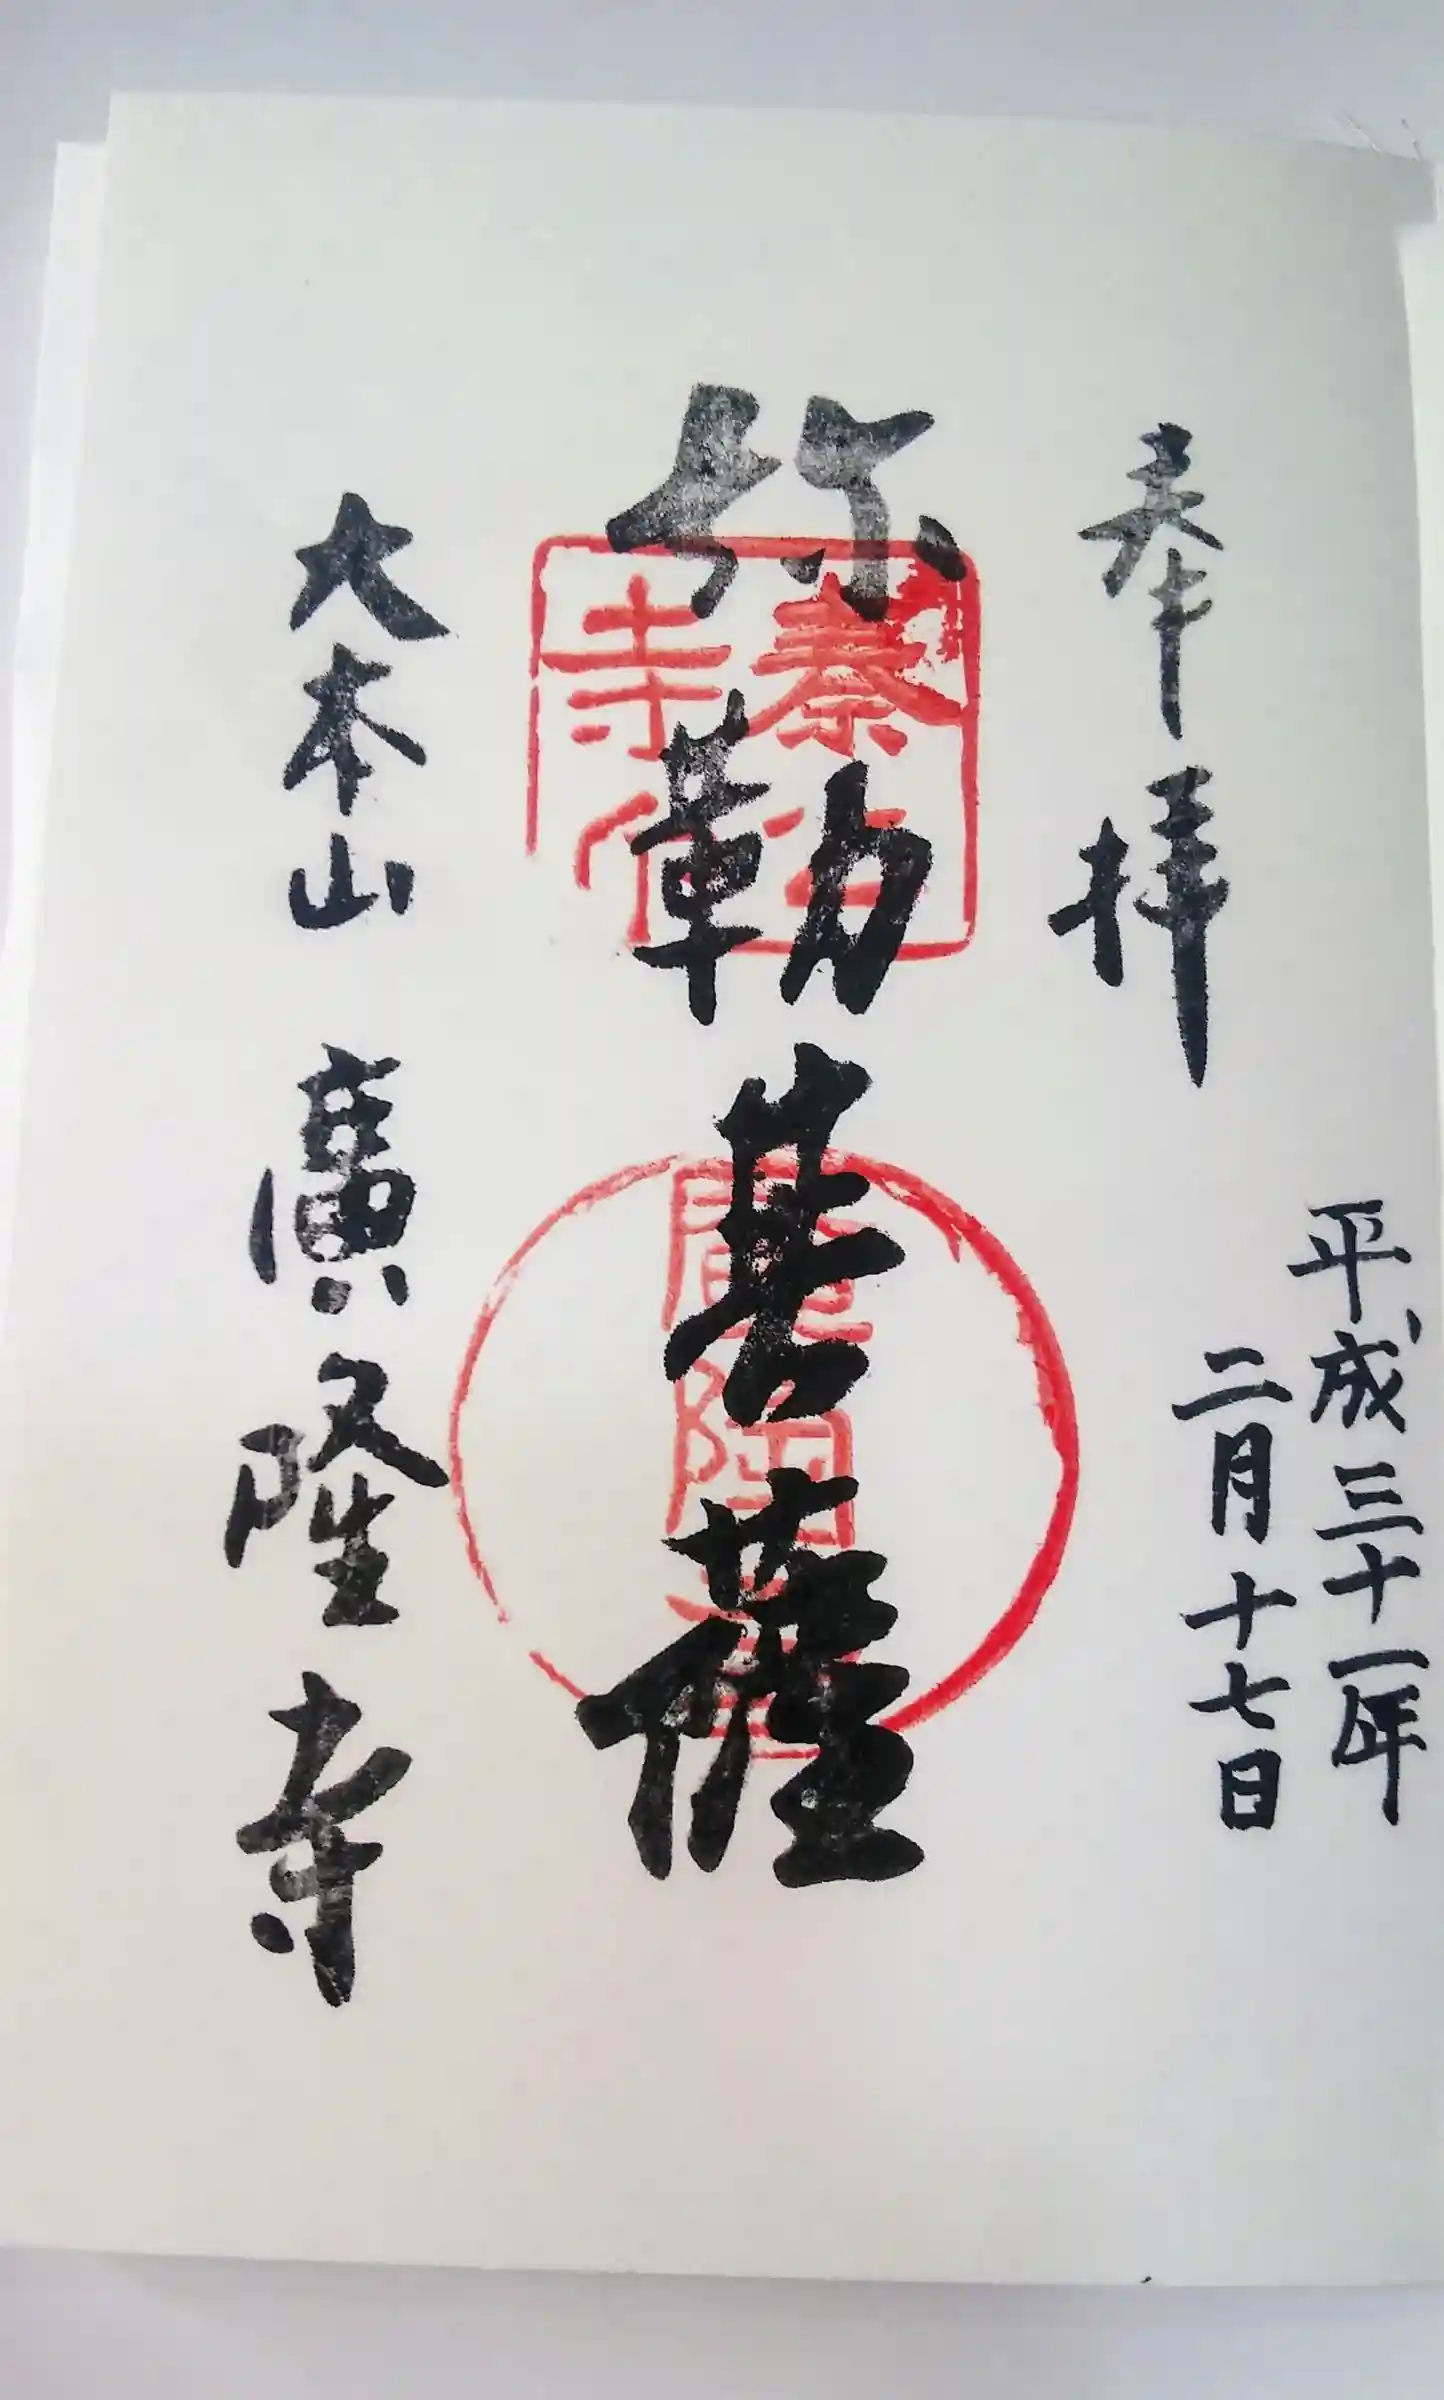 奉拝
平成三十一年
二月十七日
弥勒菩薩
大本山 廣隆寺